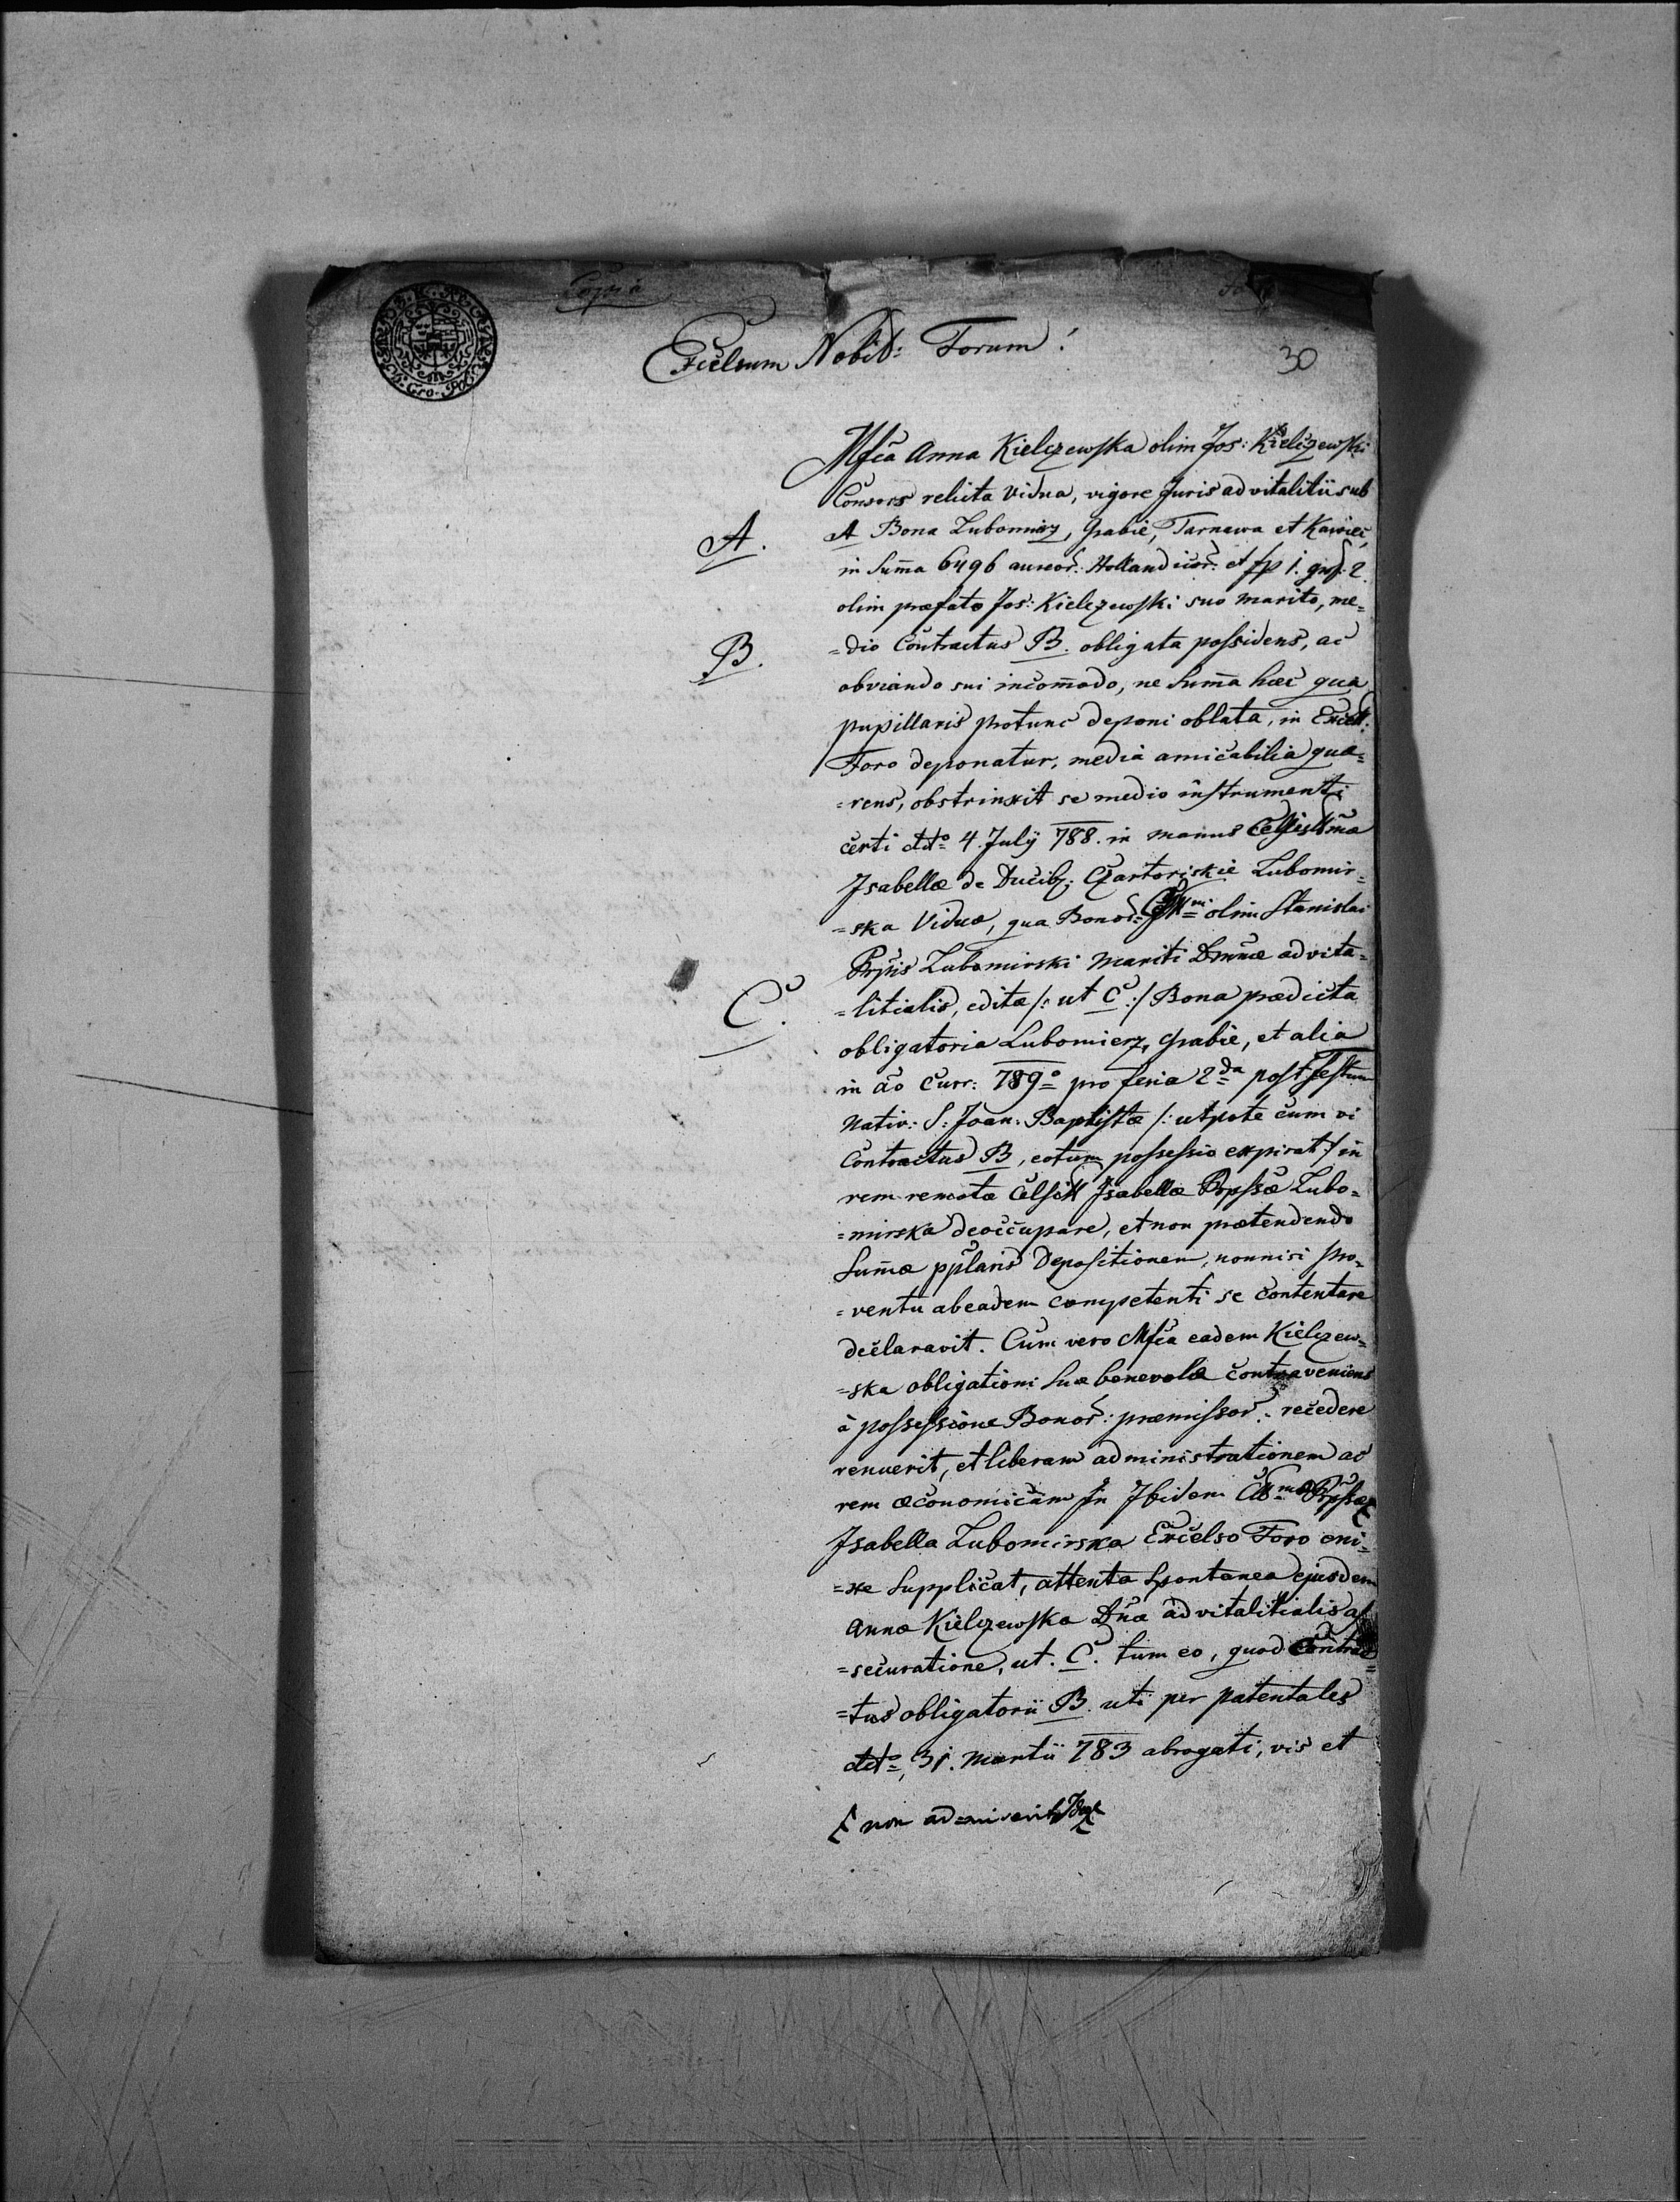 Copia
Excelsum Nobil: Forum!
30
Mfca Anna Kielczewska olim Jos: Kielczewski
Consors relicta Vidua, vigore Juris advitalitii sub
A. A Bona Lubomierz, Grabie, Tarnawa et Kawiec,
in Suma 6496 aureor: Hollandicor: et fp 1. gros. 2.
olim præfato Jos: Kielczewski suo marito, me=
B. =dio Contractus B. obligata possidens, ac
obviando sui incomodo, ne Suma hæc qua
pupillaris protunc deponi oblata, in Excell:
Foro deponatur, media amicabilia quæ=
=rens, obstrinxit se medio instrumenti
certi ddto 4. July 788. in manus Celsissimæ
Isabellæ de Ducib: Czartoriskie Lubomir=
=ska Viduæ, qua Bonor: olim Stanislai
Prpis Lubomirski Mariti Dominæ advita=
C. =litialis, editæ /: ut C :/ Bona prædicta
obligatoria Lubomierz, Grabie, et alia
in ao curr: 789o pro feria 2da post festum
Nativ: S: Joan: Baptistæ /: utpote cum vi
Contractus B, eotum possessio expirat :/ in
rem remota Celsiss Isabellæ Prpssæ Lubo=
=mirska deoccupare, et non prætendendo
Sumæ pplaris Depositionem, nonnisi pro=
=ventu ab eadem competenti se contentare
declaravit. Cum vero Mfca eadem Kielczew=
=ska obligationi suæ benevolæ contraveniens
à possessione Bonor: præmissor: recedere
renuerit, et liberam administrationem ac
rem œconomicam in Ibidem Prpssæ
Isabella Lubomirska Excelso Foro eni=
=xe Supplicat, attenta Spontanea ejusdem
Annæ Kielczewska Dnæ advitalitialis as
=securatione, ut. C. tum eo, quod Contrac=
=tus obligatorii B. uti per patentales
ddto, 31. Martii 783 abrogati, vis et
non admiserit